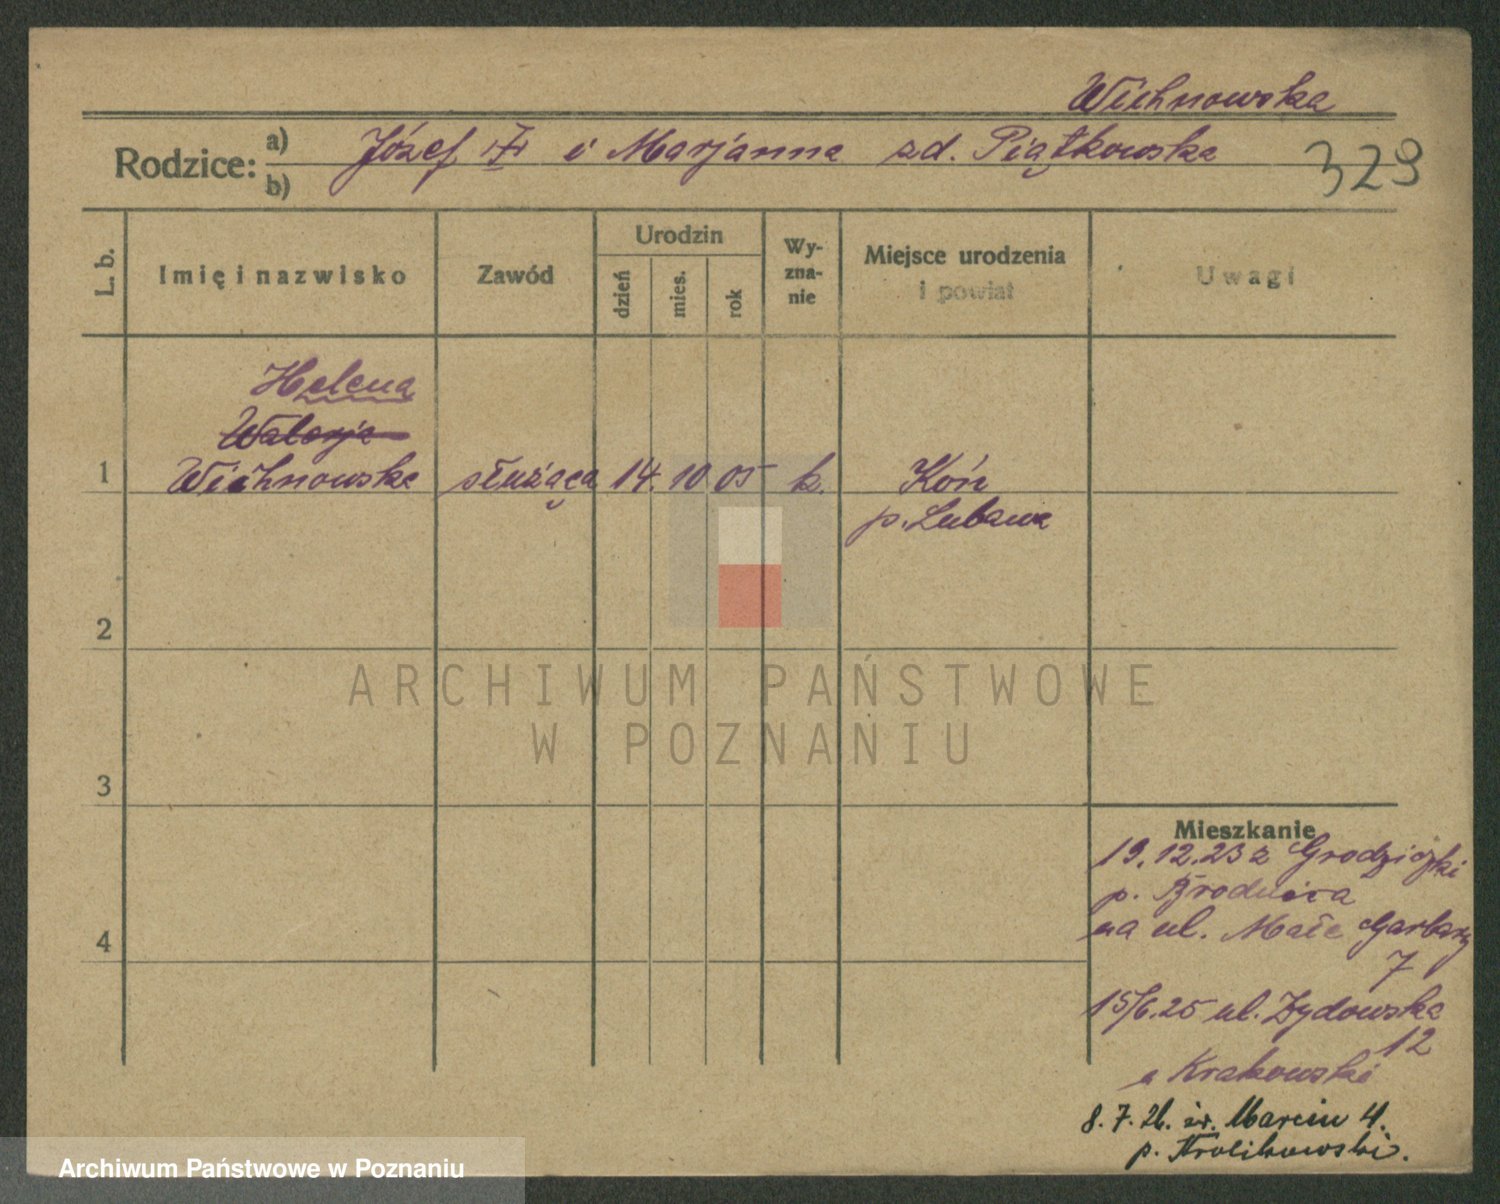 Wichnowska
Rodzice: a) Józef i Marjanna zd. Piątkowska
b)
329
L. b.
Imię i nazwisko
Zawód
Urodzin
dzień
mies.
rok
Wy-
zna-
nie
Miejsce urodzenia
i powiat
Uwagi
Helena
Walerja
1 Wichnowska służąca 14. 10 05 k. Kóń
p. Lubawa
2
3
4
ARCHIWUM PAŃSTWOWE
W POZNANIU
Mieszkanie
19.12.23 z Grodziczki
p. Brodnica
na ul. Małe Garbary
7
15/6.25 ul. Żydowska
12
u Krakowski
8.7.26. św. Marcin 4.
p. Królikowski.
Archiwum Państwowe w Poznaniu